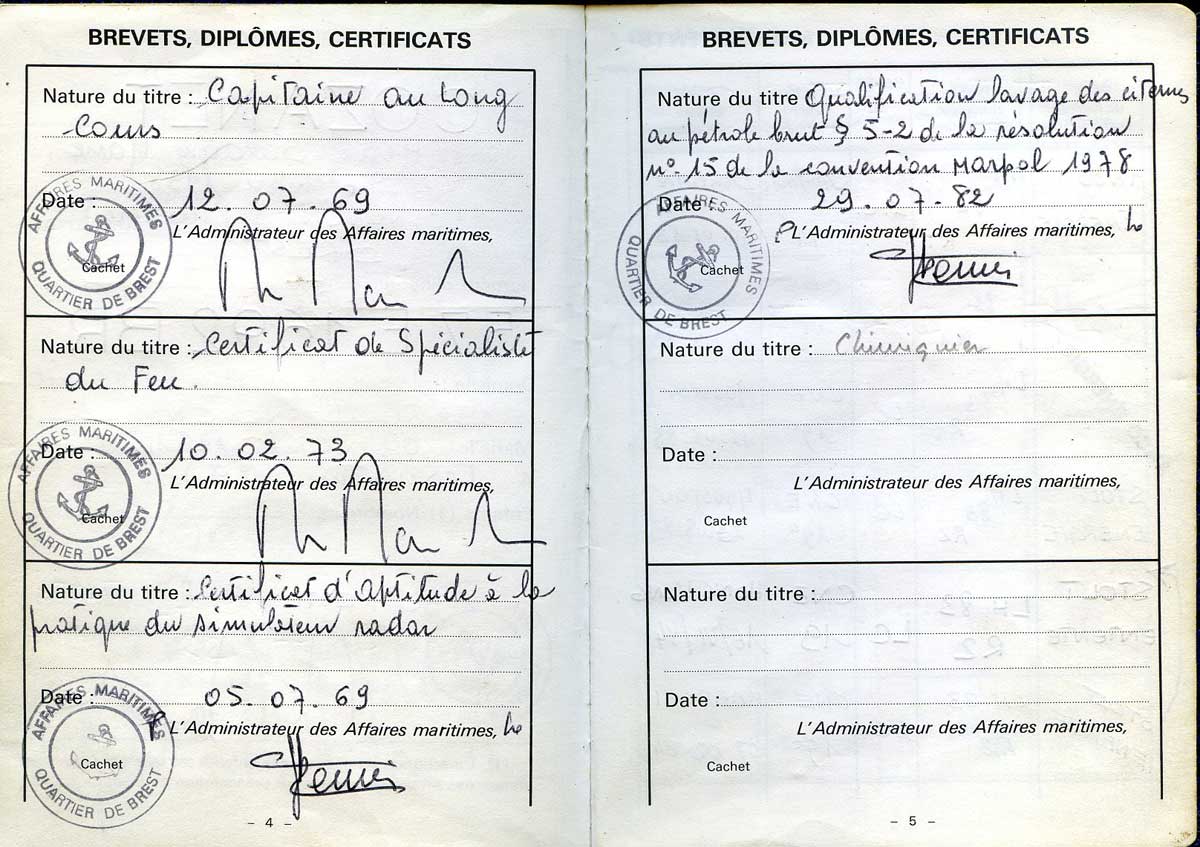 BREVETS, DIPLÔMES, CERTIFICATS
Nature du titre : Capitaine au Long
Cours
Date : 12.07.69
L'Administrateur des Affaires maritimes,
Cachet
AFFAIRES MARITIMES
QUARTIER DE BREST
Nature du titre : Certificat de Spécialiste
du Feu.
Date : 10.02.73
L'Administrateur des Affaires maritimes,
Cachet
AFFAIRES MARITIMES
QUARTIER DE BREST
Nature du titre : Certificat d'aptitude à la
pratique du simulateur radar
Date : 05.07.69
L'Administrateur des Affaires maritimes,
Cachet
AFFAIRES MARITIMES
QUARTIER DE BREST
- 4 -
BREVETS, DIPLÔMES, CERTIFICATS
Nature du titre Qualification lavage des citernes
au pétrole brut § 5-2 de la résolution
n° 15 de la convention Marpol 1978
Date : 29.07.82
L'Administrateur des Affaires maritimes,
Cachet
AFFAIRES MARITIMES
QUARTIER DE BREST
Nature du titre : Chimiquier
Date :
L'Administrateur des Affaires maritimes,
Cachet
Nature du titre :
Date :
L'Administrateur des Affaires maritimes,
Cachet
- 5 -